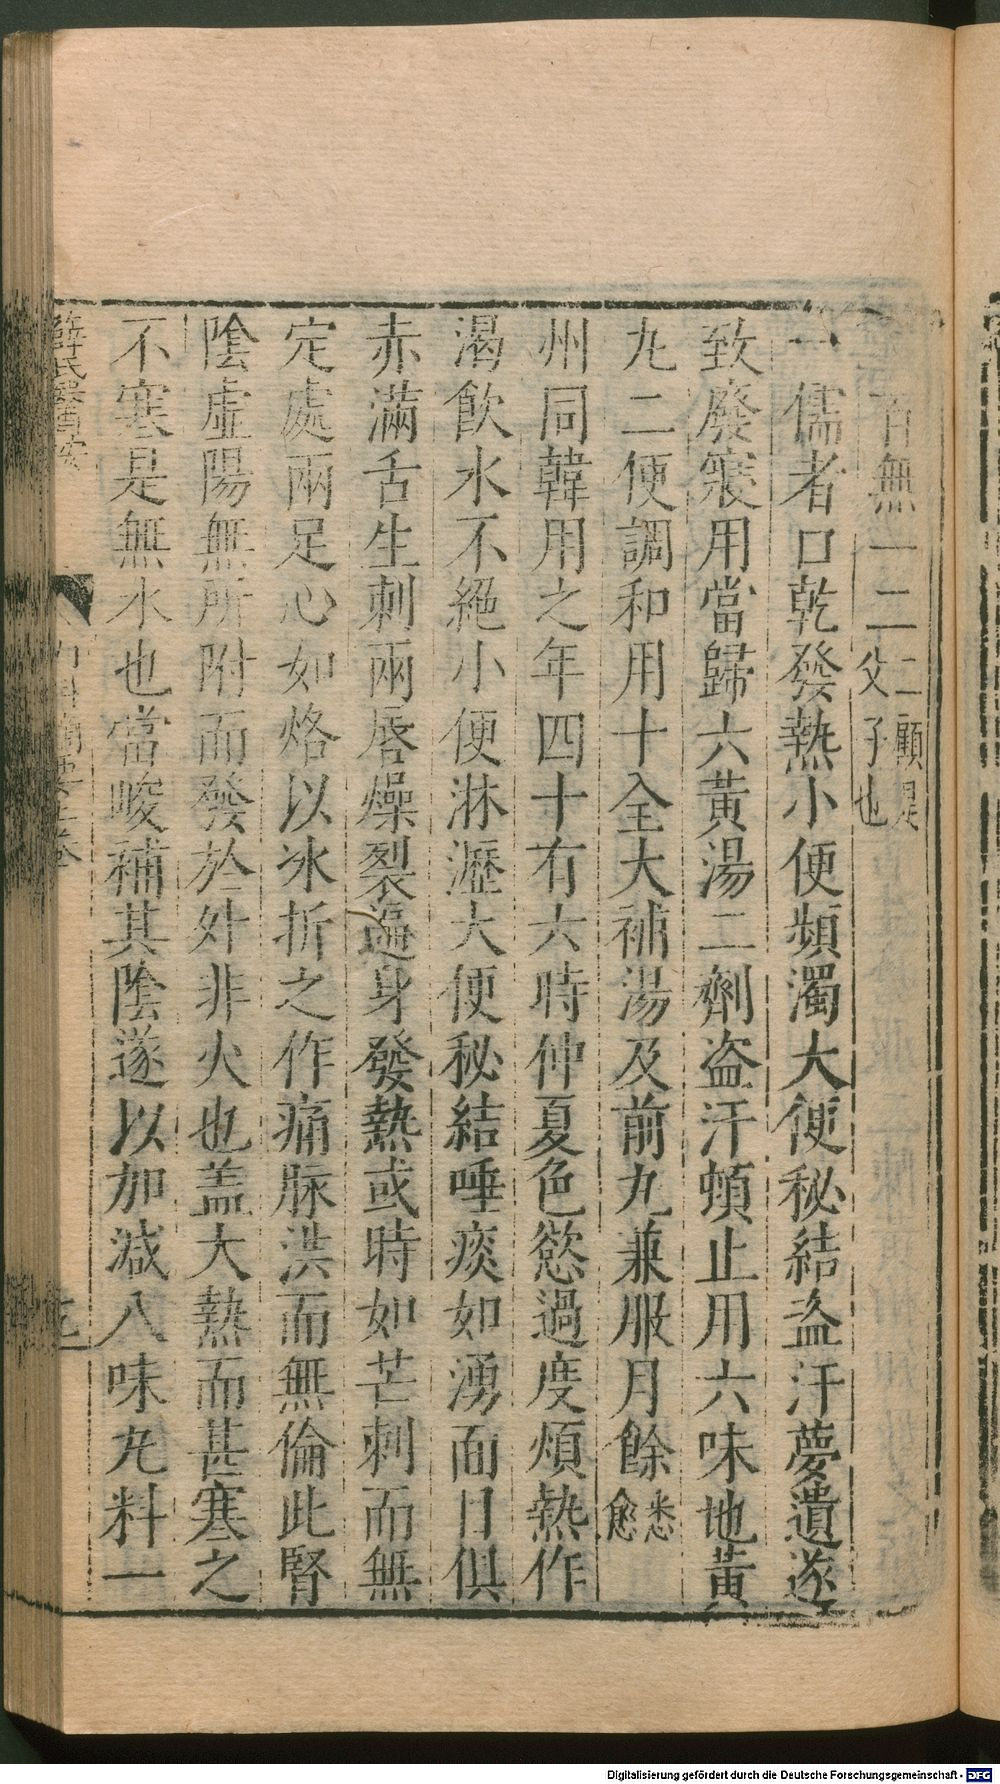 百無一二二顧是父子也
一儒者口乾發熱小便頻濁大便秘結盗汗夢遺遂
致廢寢用當歸六黃湯二劑盗汗頓止用六味地黃
丸二便調和用十全大補湯及前丸兼服月餘悉愈
州同韓用之年四十有六時仲夏色慾過度煩熱作
渴飲水不絕小便淋瀝大便秘結唾痰如湧面目俱
赤滿舌生刺兩唇燥裂遍身發熱或時如芒刺而無
定處兩足心如烙以冰折之作痛脉洪而無倫此腎
陰虛陽無所附而發於外非火也盖大熱而甚寒之
不寒是無水也當峻補其陰遂以加减八味丸料一
薛氏醫按
內科摘要上卷
Digitalisierung gefördert durch die Deutsche Forschungsgemeinschaft - DFG